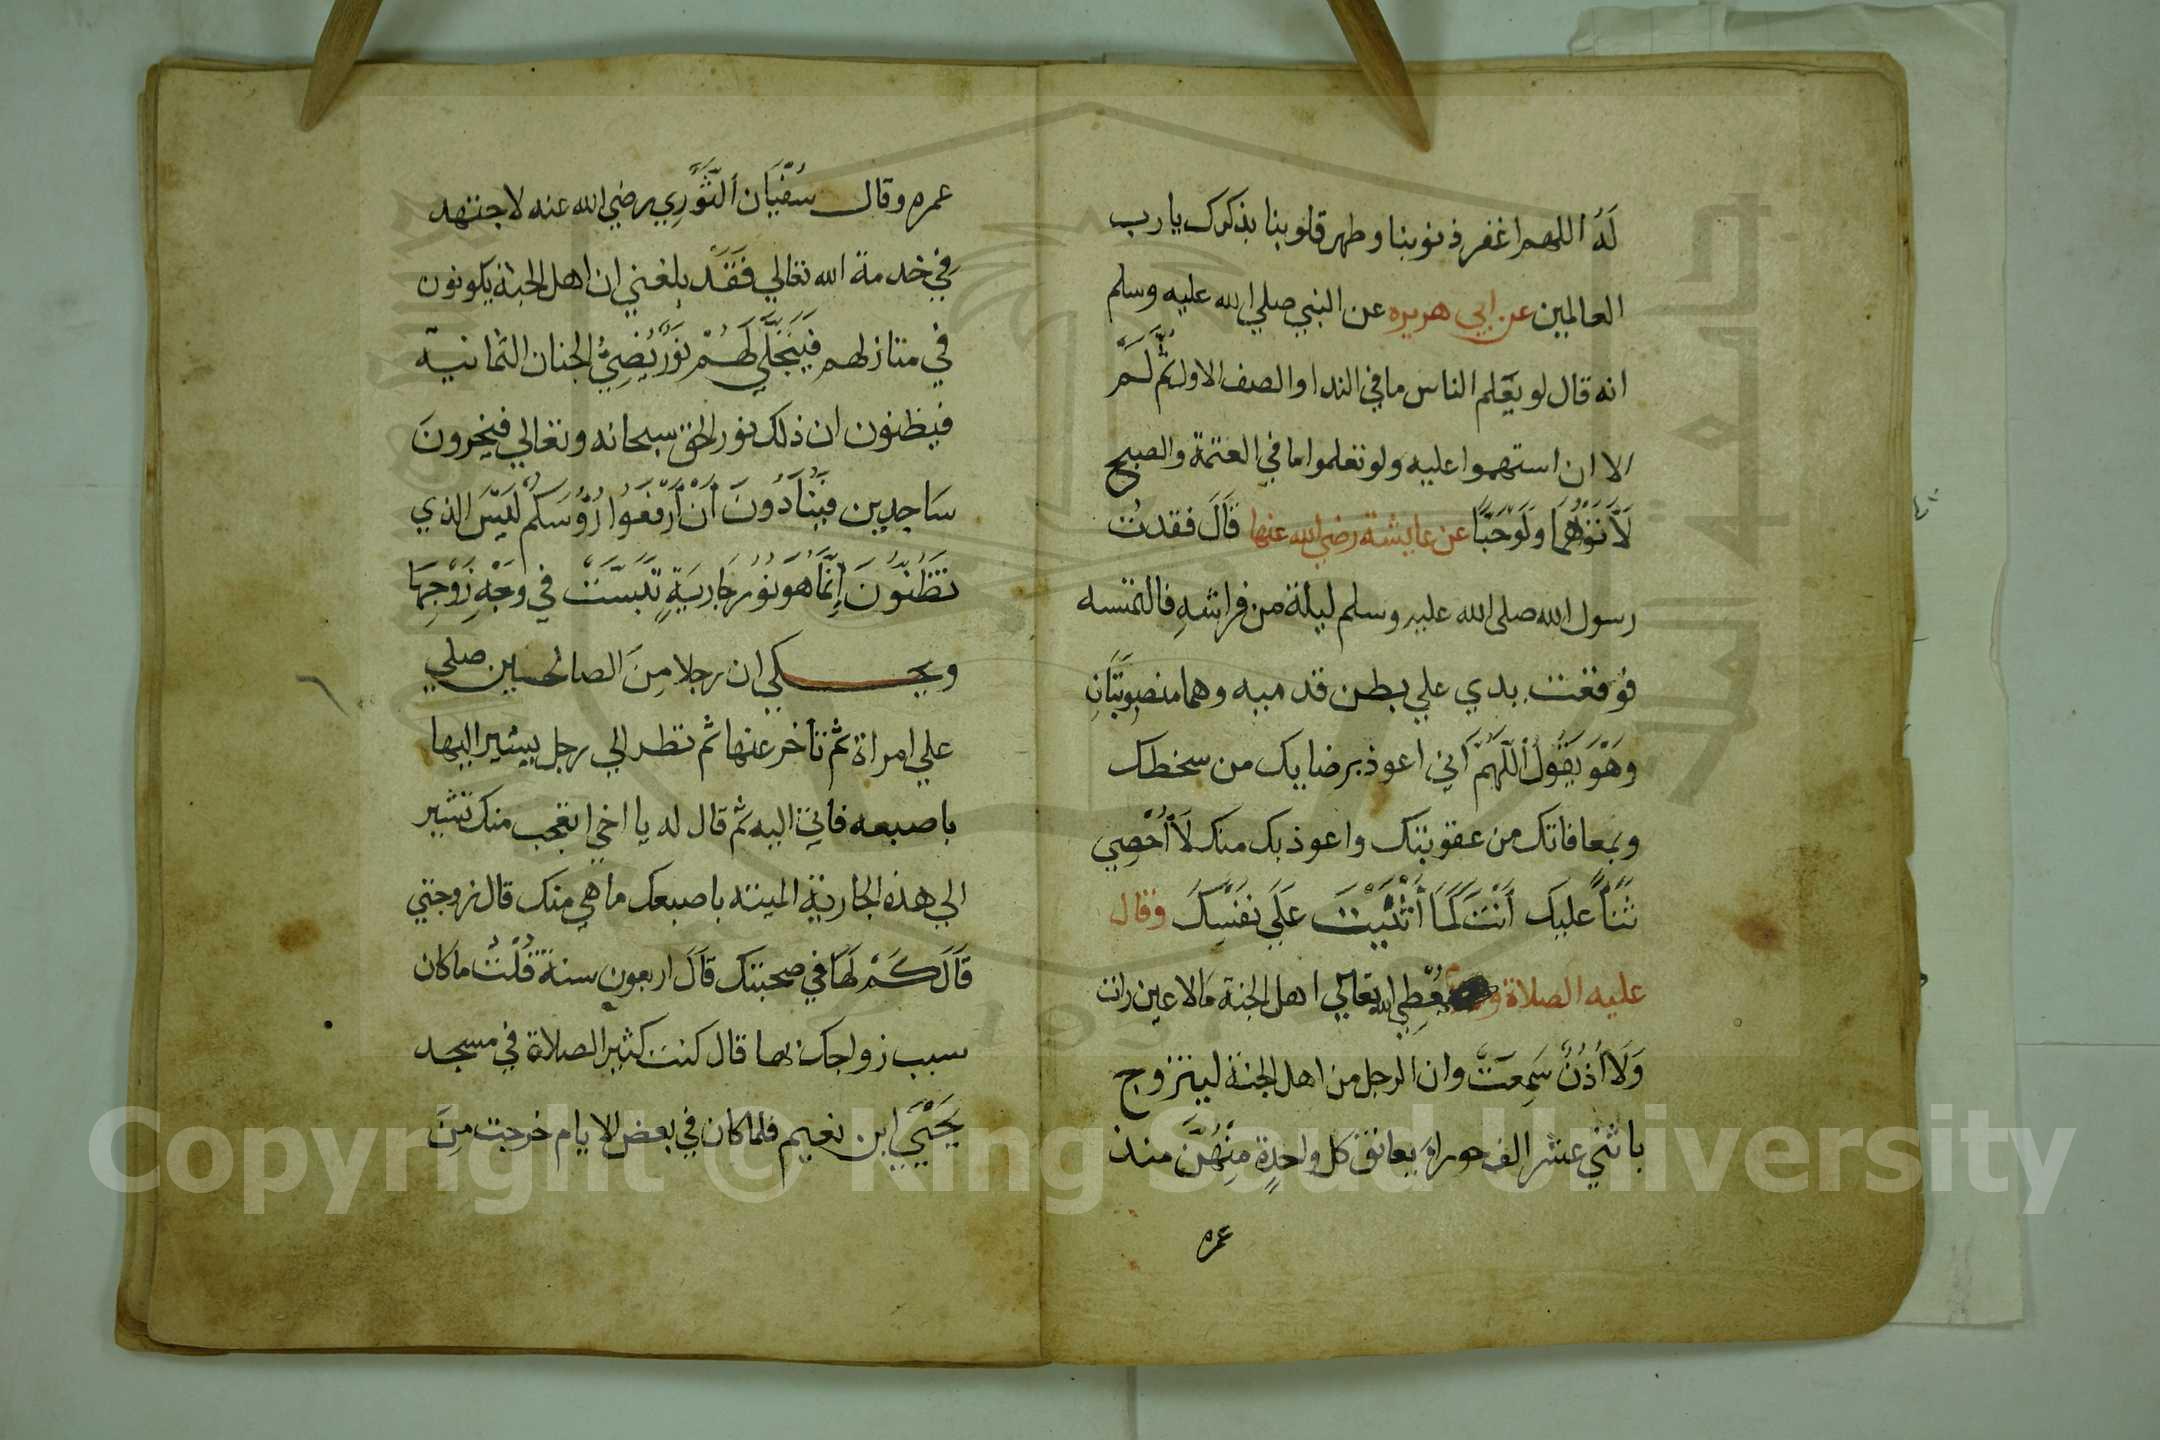 لَهُ اللهم اغفر ذنوبنا وطهر قلوبنا بذكرك يا رب
العالمين عن ابي هريره عن النبي صلي الله عليه وسلم
انه قال لو يعلم الناس ما في الندا والصف الاول ثُمَّ لَمْ
الا ان استهموا عليه ولو تعلموا ما في العتمة والصبح
لَاَتَوْهُمَا وَلَوْ حَبْوًا عن عايشة رضي الله عنها قَالَ فقدتُ
رسول الله صلى الله عليه وسلم ليلة من فراشهِ فالتمسه
فوقعت يدي علي بطن قدميه وهما منصوبَتَانِ
وَهْوَ يَقُولُ اللَّهُمَّ اني اعوذ برضايك من سخطك
وبمعافاتك من عقوبتك واعوذ بك منك لَا اُحْصِي
ثَنَاً عليك اَنْتَ كَمَا اَثْنَيْتَ عَلَي نَفْسِكَ وقال
عليه الصلاة و يُعْطِي الله تعالي اهل الجنة مَا لا عين رات
وَلَا اُذُنٌ سَمِعَتْ وان الرجل من اهل الجنة ليتزوج
باثني عشر الف حورا ويعانق كل واحدةٍ مِنْهُنَّ منذ
عمره
عمره وقال سُفْيَان الثَّوْرِي رضي الله عنه لاجتهد
في خدمة الله تعالي فَقَدْ بلغني ان اهل الجنة يكونون
في منازلهم فَيَتَجَلَّي لَهُمْ نُورٌ يُضِيُ الجنان الثمانية
فيظنون ان ذلك نور الحق سبحانه وتعالي فيخرونَ
سَاجِدِين فَيُنَادُونَ اَنْ اَرْفَعُوا رُؤُسَكُمْ لَيْسَ الذي
تَظُنُّونَ اِنَّمَا هُوَ نُورُ جَارِيَةٍ تَبَسَّمَتْ في وَجْهِ زَوْجِهَا
ويحكي ان رجلا مِنَ الصالحين صلي
علي امراة ثم تاخر عنها ثم نظر الي رجل يشير اليها
باصبعه فاتي اليه ثم قال له يا اخي اتعجب منك تشير
الي هذه الجارية الميته باصبعك ما هي منك قال زوجتي
قَالَ كَمْ لَهَا في صحبتك قَالَ اربعون سنة قُلْتُ ما كان
سبب زواجك بها قال كنت كثير الصلاة في مسجد
يَحْيَي ابن نعيم فلما كان في بعض الايام خرجت مِنَ
Copyright © King Saud University